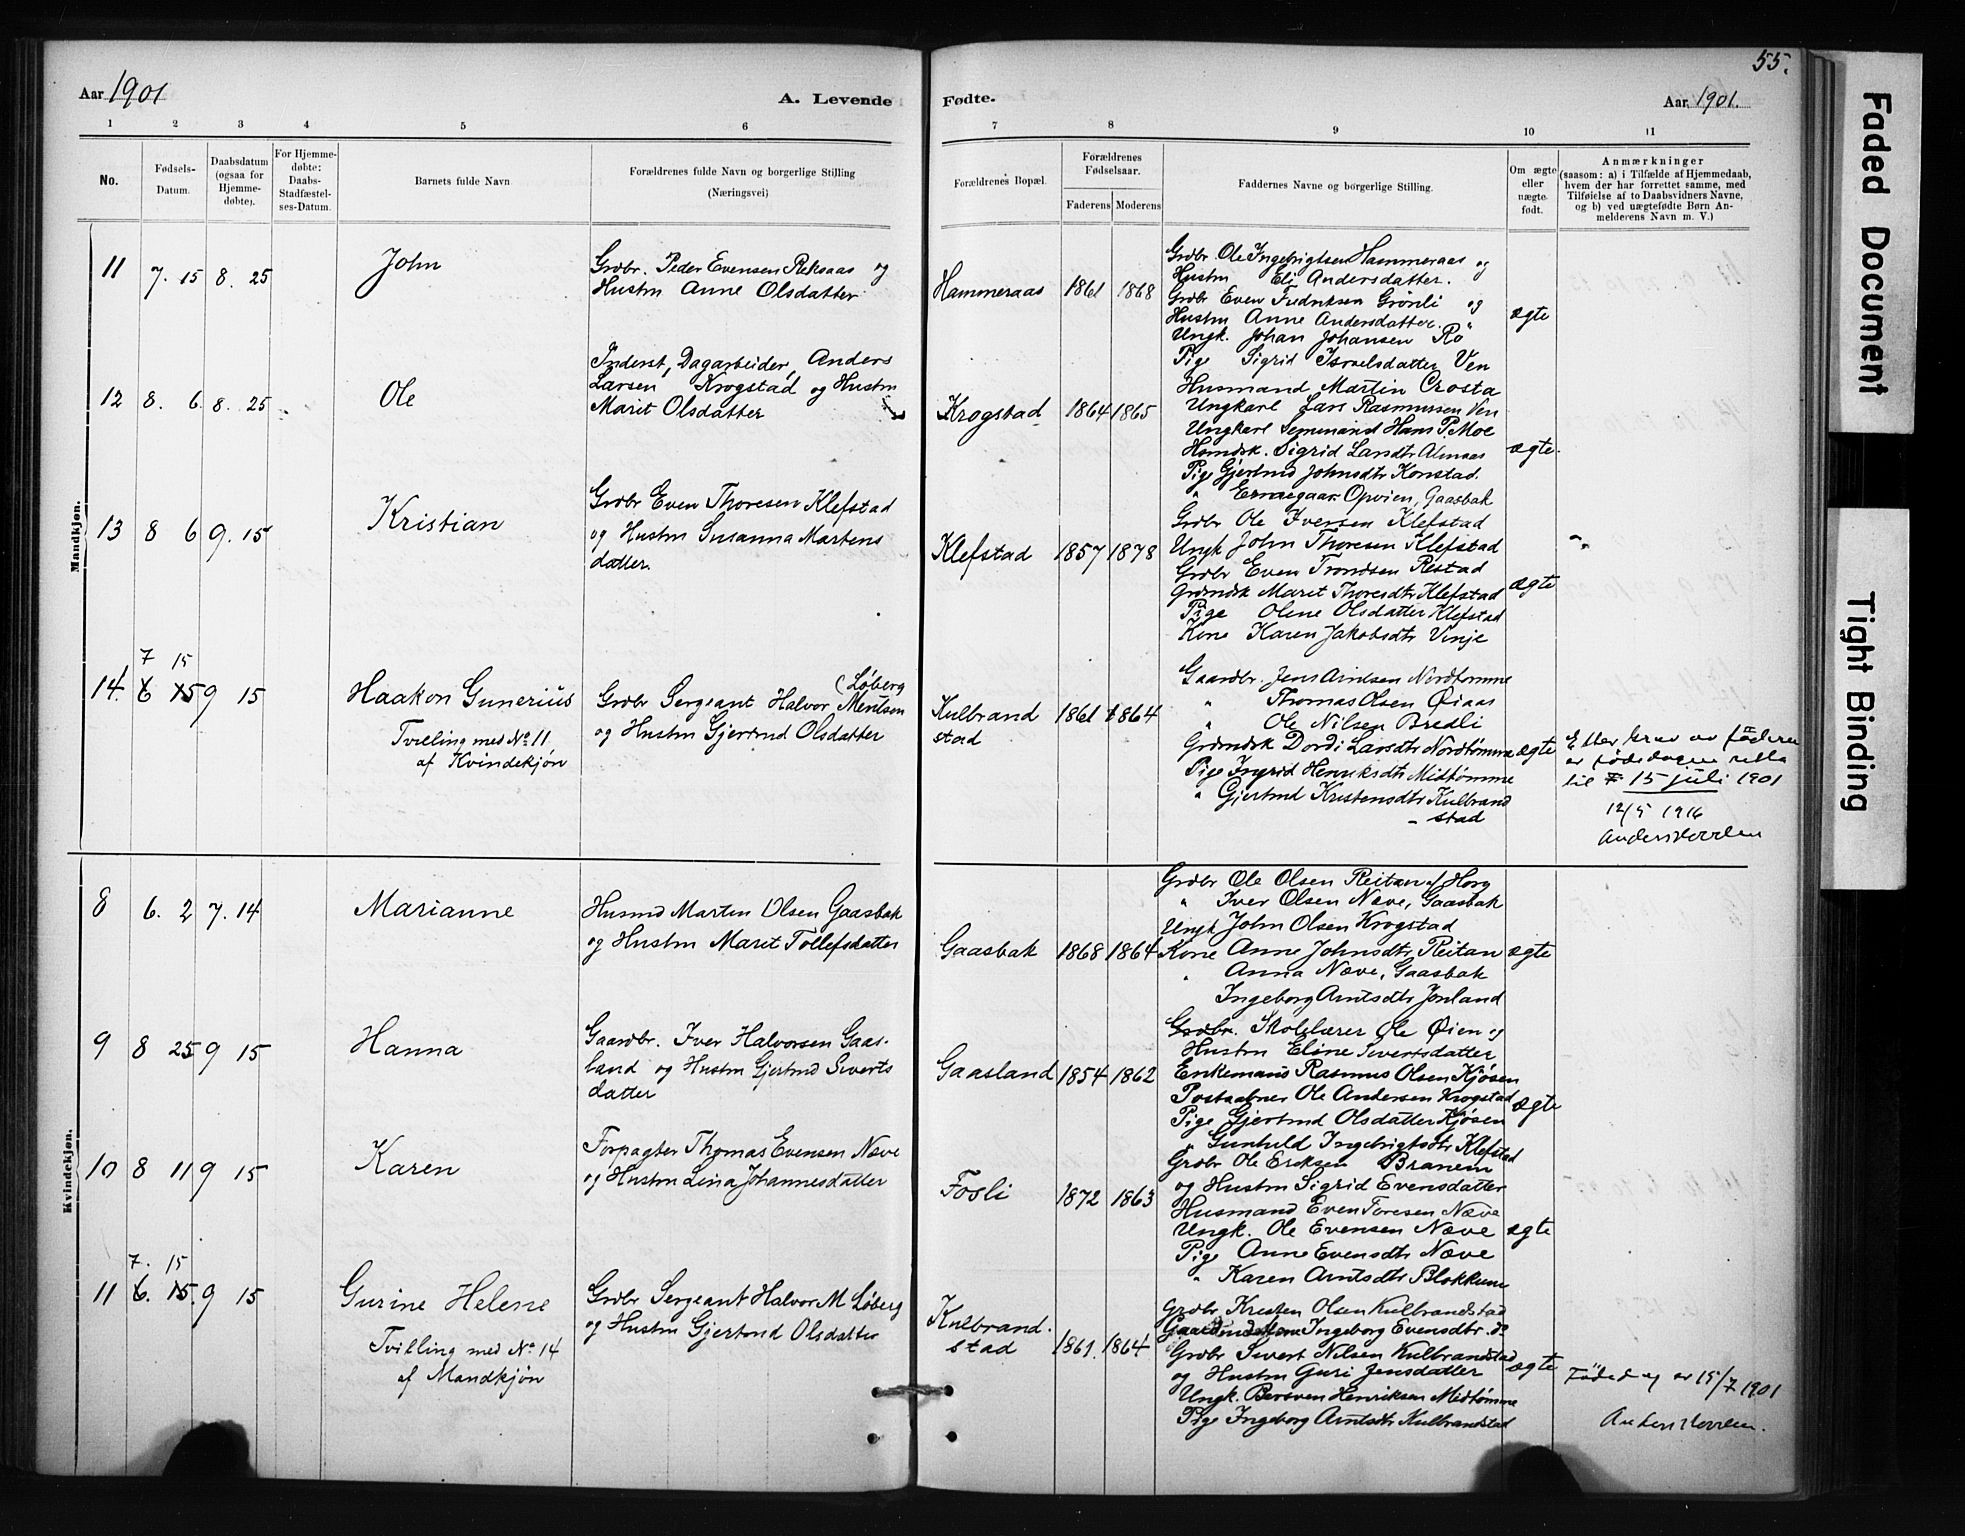 55.
Aar 1901
A. Levende
Fødte.
Aar 1901.
1 2 3 4 5 6 7 8 9 10 11
No.
Fødsels-
Datum.
Daabsdatum
(ogsaa for
Hjemme-
døbte).
For Hjemme-
døbte:
Daabs-
Stadfæstel-
ses-Datum.
Barnets fulde Navn
Forældrenes fulde Navn og borgerlige Stilling
(Næringsvei)
Forældrenes Bopæl.
Forældrenes
Fødselsaar.
Faderens Moderens
Faddernes Navne og borgerlige Stilling.
Om ægte
eller
uægte
født.
Anmærkninger
(saasom: a) i Tilfælde af Hjemmedaab,
hvem der har forrettet samme, med
Tilføielse af to Daabsvidners Navne,
og b) ved uægtefødte Børn An-
melderens Navn m. V.)
Mandkjøn.
11 7. 15 8. 25
John
Grdbr. Peder Evensen Reksaas og
Hustru Anne Olsdatter
Hammeraas 1861 1868
Grdbr Ole Ingebrigtsen Hammeraas og
Hustru Eli Andersdatter.
Grdbr Even Fredriksen Grönli og
Hustru Anne Andersdatter.
Ungk. Johan Johansen Rö
Pige Sigrid Israelsdatter Ven
ægte
12 8. 6. 8. 25
Ole
Inderst, Dagarbeider, Anders
Larsen Krogstad og Hustru
Marit Olsdatter
Krogstad 1864 1865
Husmand Martin Crosta
Ungkarl Lars Rasmussen Ven
Ungkarl Seminarid Hans P. Moe
Sigrid Larsdtr
Pige Gjertrud Johnsdtr Konstad.
" Opvien, Gaasbak
ægte.
13 8 6 9. 15
Kristian
Grdbr Even Thoresen Klefstad
og Hustru Susanna Martens
datter.
Klefstad 1857 1878
Grdbr Ole Iversen Klefstad
Ungk John Thoresen Klefstad
Grdbr Even Trondsen Restad
Grdmdsk Marit Thoresdtr Klefstad
Pige Olene Olsdatter Klefstad
Kone Karen Jakobsdtr Vinje
ægte
7 15
14. 6 15 9 15
Haakon Gunerius
Tvilling med No 11
af Kvindekjøn
(Løberg
Grdbr Sergeant Halvor Mentsen
og Hustru Gjertrud Olsdatter
Kulbrand
stad
1861 1864
Gaardbr. Jens Arntsen Nordtømme
" Thomas Olsen Øiaas
" Ole Nilsen Bredli
Grdmdsk Dordi Larsdtr Nordtømme
Pige Ingrid Henriksdtr Midtømme
" Gjertrud Kristensdtr Kulbrand
- stad
ægte
Efter brev av
er fødedagen retta
til 15 juli 1901
12/5 1916
Kvindekjøn.
8 6. 2 7. 14
Marianne
Husmd Martin Olsen Gaasbak
og Hustru Marit Tollefsdatter
Gaasbak 1868 1864
Grdbr Ole Olsen Reitan af Horg
" Iver Olsen Næve, Gaasbak
Ungk John Olsen Krogstad
Kone Anne Johnsdtr Reitan
" Anna Næve, Gaasbak
Ingeborg Arntsdtr Jonland
ægte
9 8 25 9 15
Hanna
Gaardbr. Iver Halvorsen Gaas-
land og Hustru Gjertrud Siverts
datter
Gaasland 1854 1862
Grdbr. Skolelærer Ole Øien og
Hustru Eline Sivertsdatter
Enkemand Rasmus Olsen Kjösen
Postaabner Ole Andersen Krogstad
Pige Gjertrud Olsdatter Kjösen
" Gunhild Ingebrigtsdtr Klefstad
ægte
10 8 11 9 15
Karen
Forpagter Thomas Evensen Næve
og Hustru Lina Johannesdatter
Fosli 1872 1863
Grdbr Ole Eriksen Branem
og Hustru Sigrid Evensdatter
Husmand Even Toresen Næve
Ungk. Ole Evensen Næve
Pige Anne Evensdtr Næve
" Karen Arntsdtr Blokkum
ægte
7. 15
11 6. 15. 9 15
Gurine Helene
Tvilling med No 14
af Mandkjøn
Grdbr Sergeant Halvor M Løberg
og Hustru Gjertrud Olsdatter
Kulbrand.
stad
1861. 1864
Grdbr Kristen Olsen Kulbrandstad
Ingeborg Evensdtr. do
Grdbr Sivert Nilsen Kulbrandstad
og Hustru Guri Jensdatter
Ungk. Bersven Henriksen Midtømme
Pige Ingeborg Arntsdtr Kulbrandstad
ægte
Födedag er 15/7 1901
Faded Document
Tight Binding